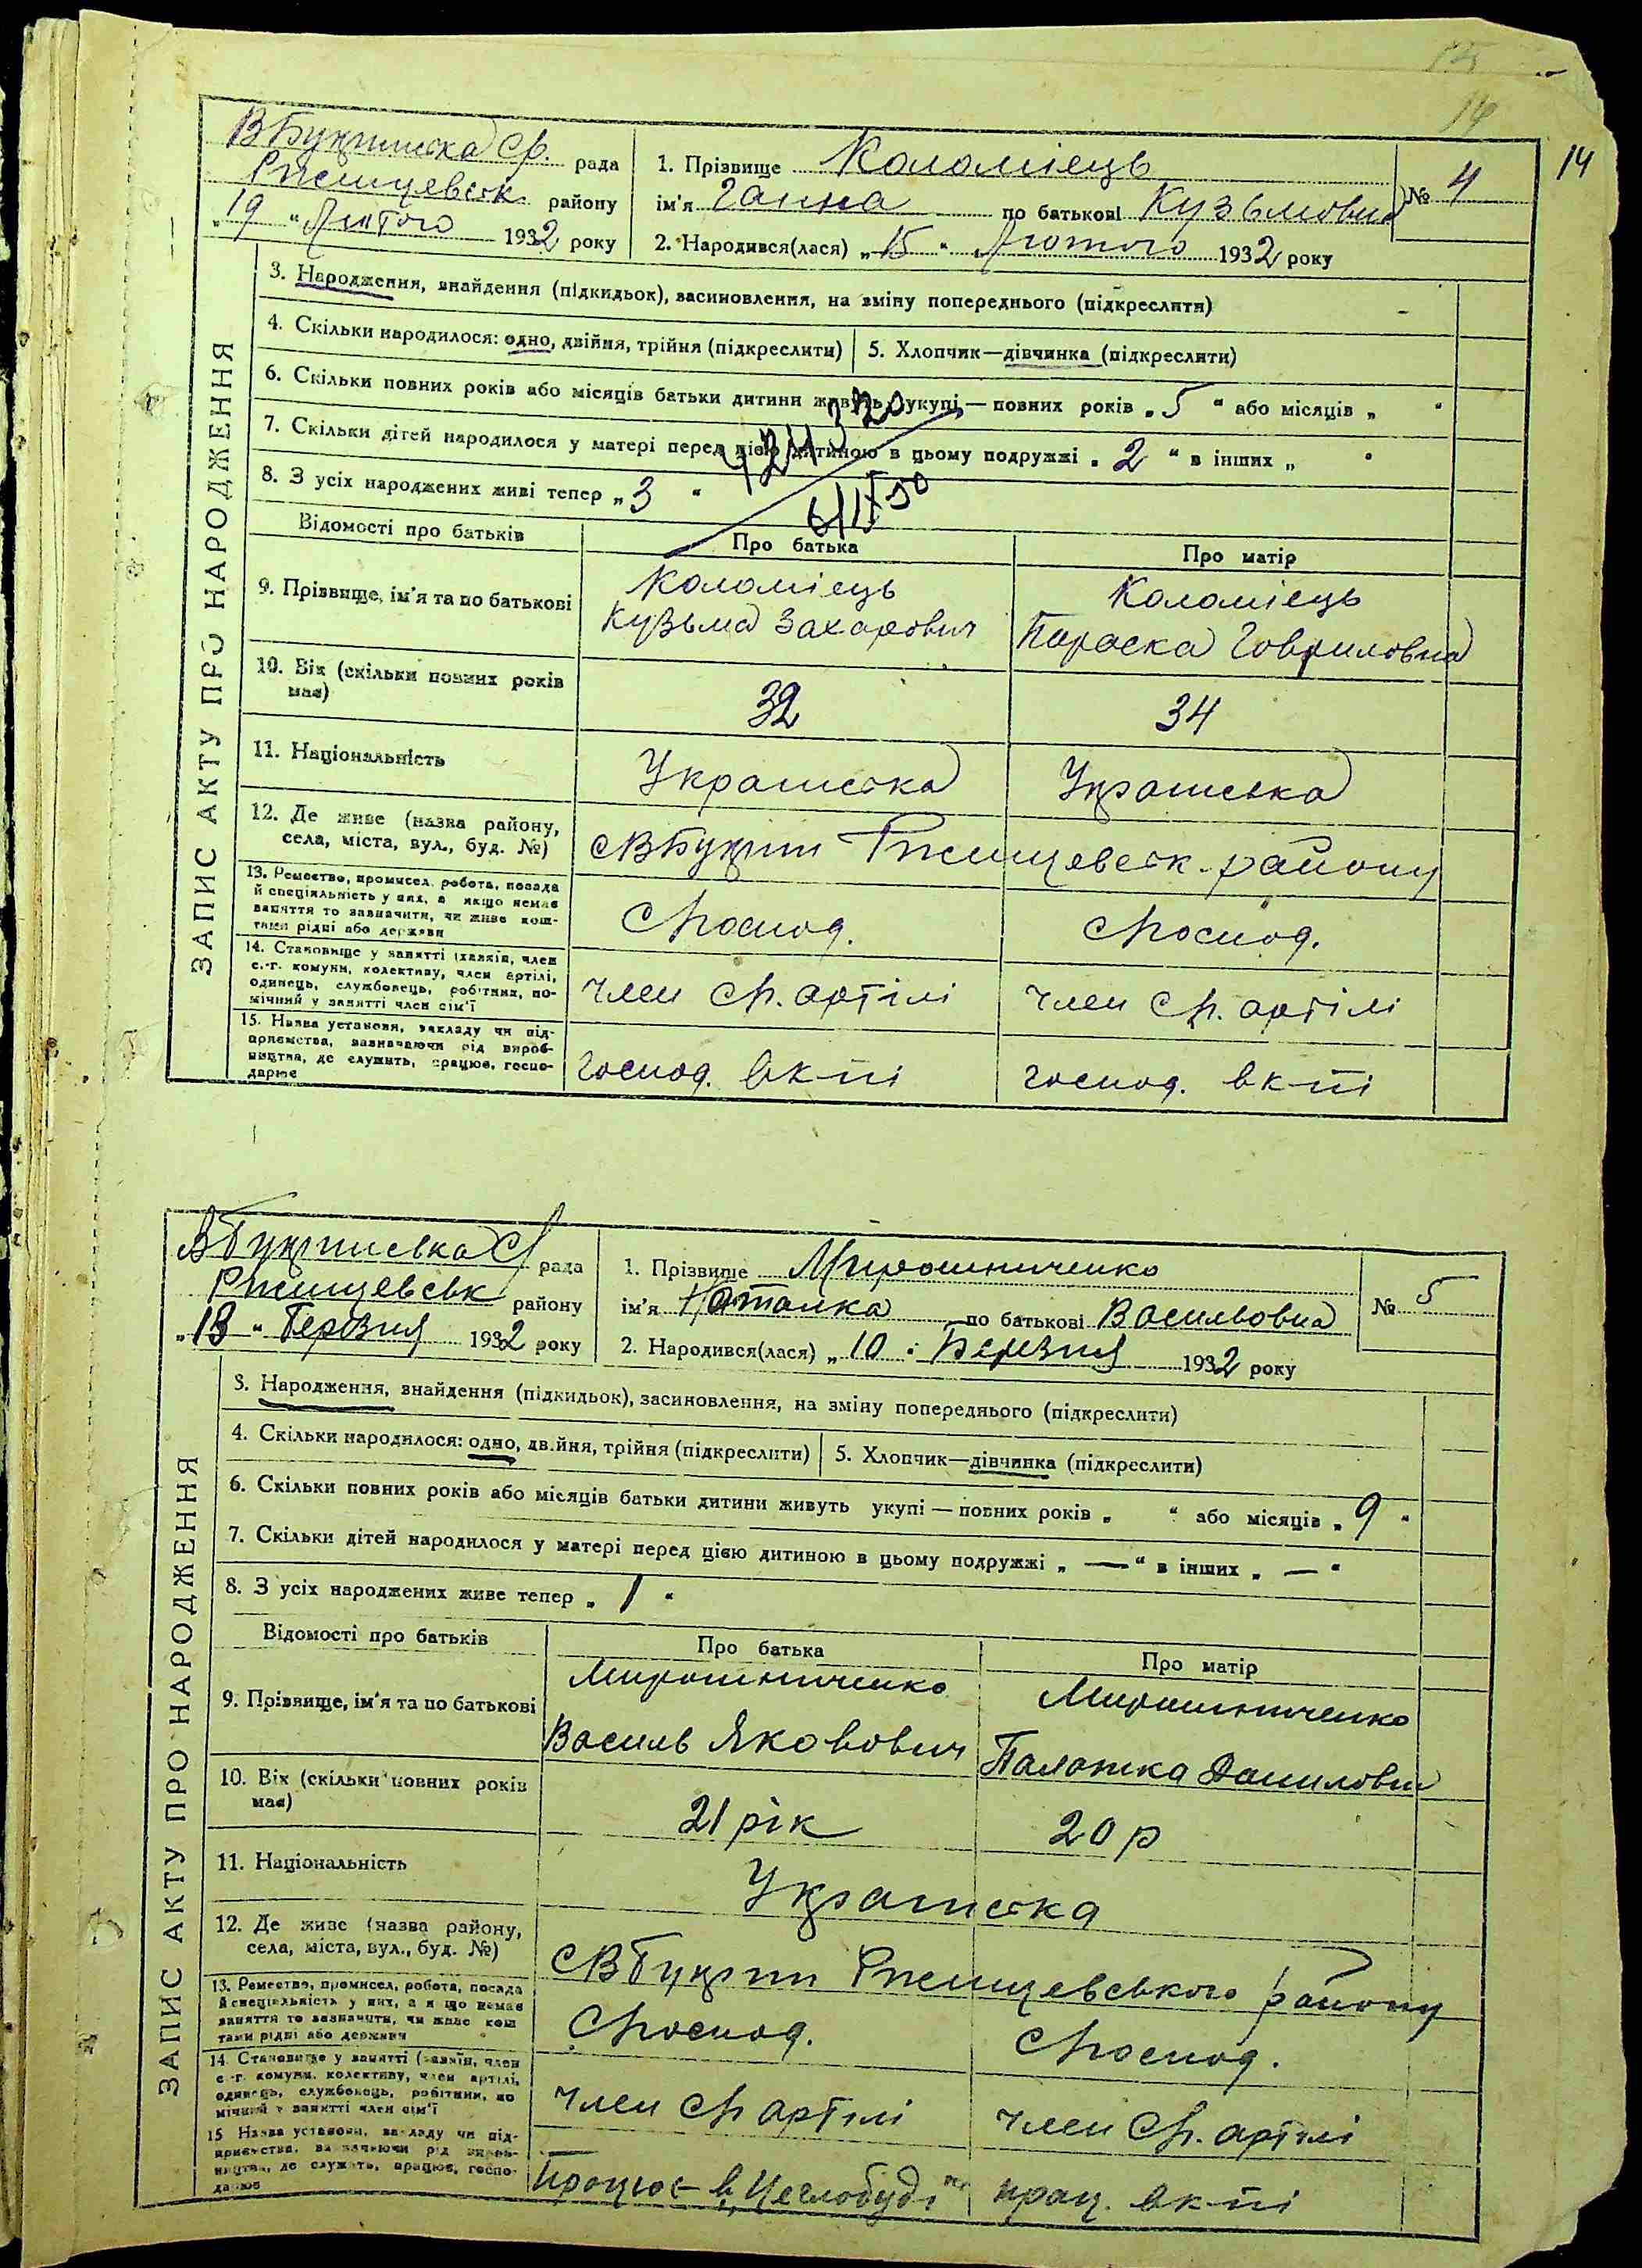 15
14
14
ВБукринська СР. рада
Ржищевськ. району
„19 “ Лютого 1932 року
1. Прізвище Коломіець
ім'я Ганна по батькові Кузьмовна
2. Народився(лася) „15“ Лютого 1932 року
№ 4
ЗАПИС АКТУ ПРО НАРОДЖЕННЯ
3. Народження, знайдення (підкидьок), засиновлення, на зміну попереднього (підкреслити)
4. Скільки народилося: одно, двійня, трійня (підкреслити)
5. Хлопчик—дівчинка (підкреслити)
6. Скільки повних років або місяців батьки дитини живуть укупі — повних років „5“ або місяців „ “
7. Скільки дітей народилося у матері перед цією дитиною в цьому подружжі „2“ в інших „ “
8. З усіх народжених живі тепер „3“
Відомості про батьків
Про батька
Про матір
9. Прізвище, ім'я та по батькові
Коломіець
Кузьма Захарович
Коломіець
Параска Гавриловна
10. Вік (скільки повних років має)
32
34
11. Національність
Украинська
Украинська
12. Де живе (назва району, села, міста, вул., буд. №)
с ВБукрин Ржищевськ. району
13. Ремество, промисел, робота, посада й спеціяльність у них, а якщо немає заняття то зазначити, чи живе коштами рідні або держави
Сгоспод.
Сгоспод.
14. Становище у занятті (хазяїн, член с.-г. комуни, колективу, член артілі, одинець, службовець, робітник, помічний у занятті член сім'ї
член СГ. артілі
член СГ. артілі
15. Назва установи, закладу чи підприємства, зазначаючи рід виробництва, де служить, працює, господарює
господ. в к-пі
господ. в к-пі
ВБукринська СР рада
Ржищевськ району
„13“ Березня 1932 року
1. Прізвище Мирошниченко
ім'я Наталка по батькові Васильовна
2. Народився(лася) „10“ Березня 1932 року
№ 5
ЗАПИС АКТУ ПРО НАРОДЖЕННЯ
3. Народження, знайдення (підкидьок), засиновлення, на зміну попереднього (підкреслити)
4. Скільки народилося: одно, двійня, трійня (підкреслити)
5. Хлопчик—дівчинка (підкреслити)
6. Скільки повних років або місяців батьки дитини живуть укупі — повних років „ “ або місяців „9“
7. Скільки дітей народилося у матері перед цією дитиною в цьому подружжі „—“ в інших „—“
8. З усіх народжених живе тепер „1“
Відомості про батьків
Про батька
Про матір
9. Прізвище, ім'я та по батькові
Мирошниченко
Василь Якович
Мирошниченко
Палажка Даниловна
10. Вік (скільки повних років має)
21 рік
20 р
11. Національність
Украинська
12. Де живе (назва району, села, міста, вул., буд. №)
с ВБукрин Ржищевського району
13. Ремество, промисел, робота, посада й спеціяльність у них, а якщо немає заняття то зазначити, чи живе коштами рідні або держави
Сгоспод.
Сгоспод.
14. Становище у занятті (хазяїн, член с.-г. комуни, колективу, член артілі, одинець, службовець, робітник, помічний у занятті член сім'ї
член СГ артілі
член СГ. артілі
15. Назва установи, закладу чи підприємства, зазначаючи рід виробництва, де служить, працює, господарює
Працює в Цеглобуді
прац. в к-пі